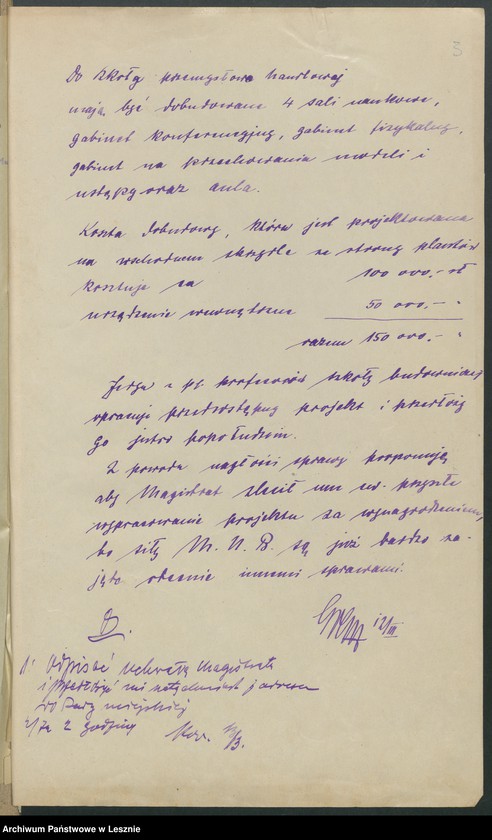 3
Do szkoły przemysłowo handlowej
mają być dobudowane 4 sali naukowe,
gabinet konferencyjny, gabinet fizykalny,
gabinet na przechowania modeli i
ustępy oraz aula.
Koszta dobudowy, która jest projektowana
na wschodnim skrzydle ze strony plantów
kosztuje za 100 000.- zł
urządzenie wewnętrzne 50 000.- "
razem 150 000.- "
Jedyn z pp. profesorów szkoły budowniczej
opracuje przedwstępny projekt i przedłoży
go jutro popołudniu.
Z powodu nagłości sprawy proponuję
aby Magistrat zlecił mu ew. przyszłe
wypracowanie projektu za wynagrodzeniem,
bo siły M. U. B. są już bardzo za-
jęte obecnie innemi sprawami.
12/III
1. Odpisać uchwałę Magistratu
i przedłożyć
do Rady miejskiej
2 godziny
Archiwum Państwowe w Lesznie